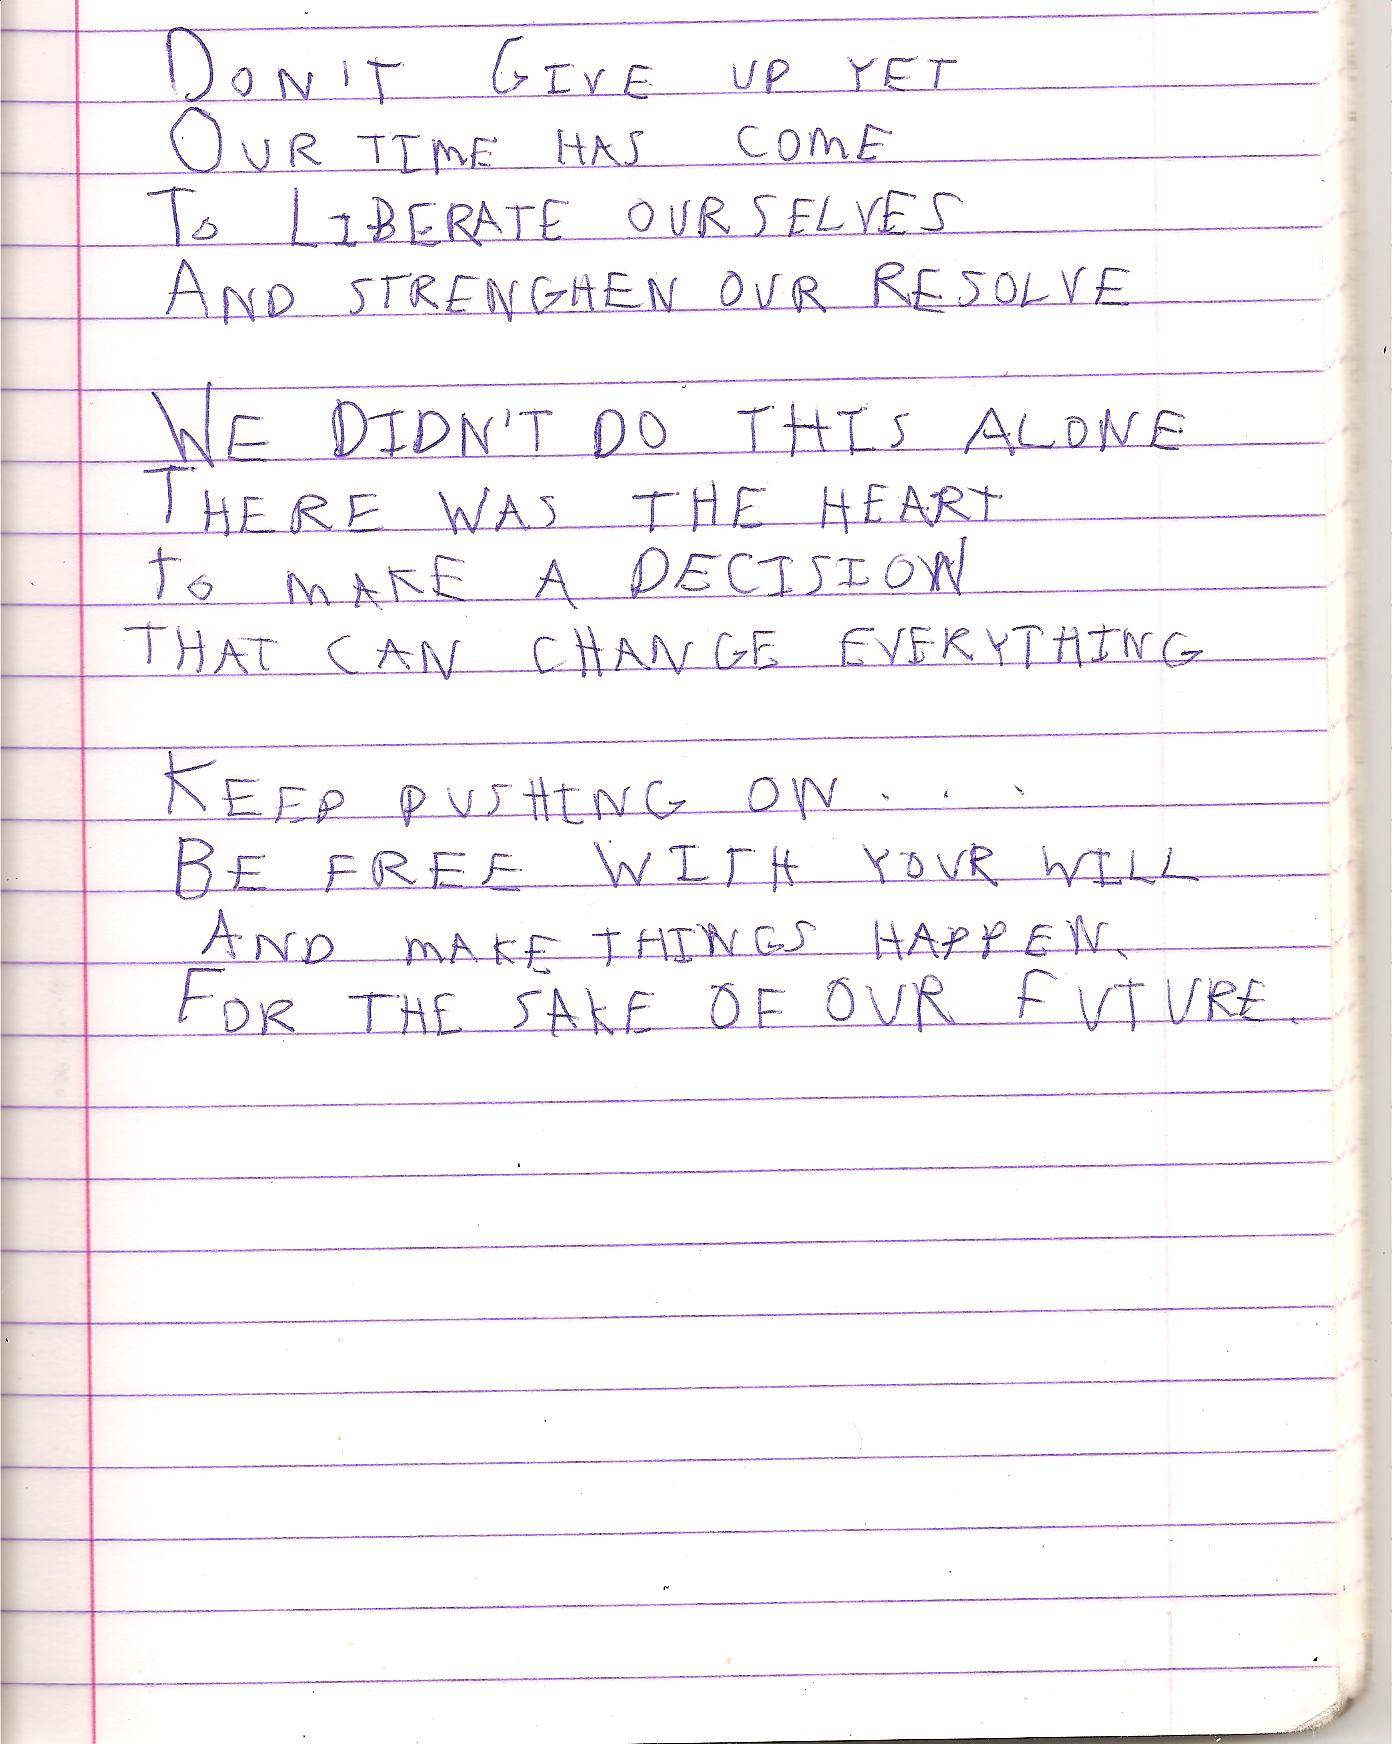 DON'T GIVE UP YET
OUR TIME HAS COME
TO LIBERATE OURSELVES
AND STRENGHEN OUR RESOLVE
WE DIDN'T DO THIS ALONE
THERE WAS THE HEART
TO MAKE A DECISION
THAT CAN CHANGE EVERYTHING
KEEP PUSHING ON...
BE FREE WITH YOUR WILL
AND MAKE THINGS HAPPEN.
FOR THE SAKE OF OUR FUTURE.